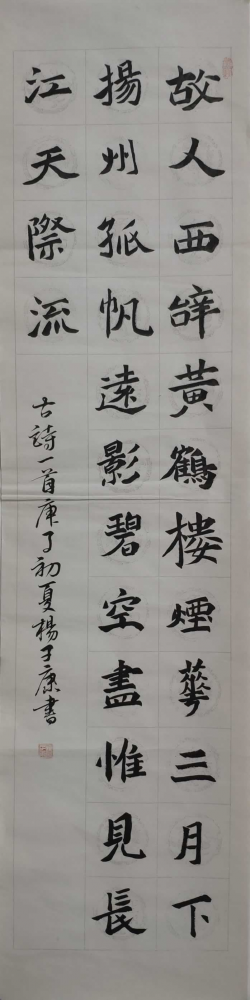 故人西辞黄鶴樓煙華三月下
揚州孤帆遠影碧空盡惟見長
江天際流
古詩一首庚子初夏楊子康書